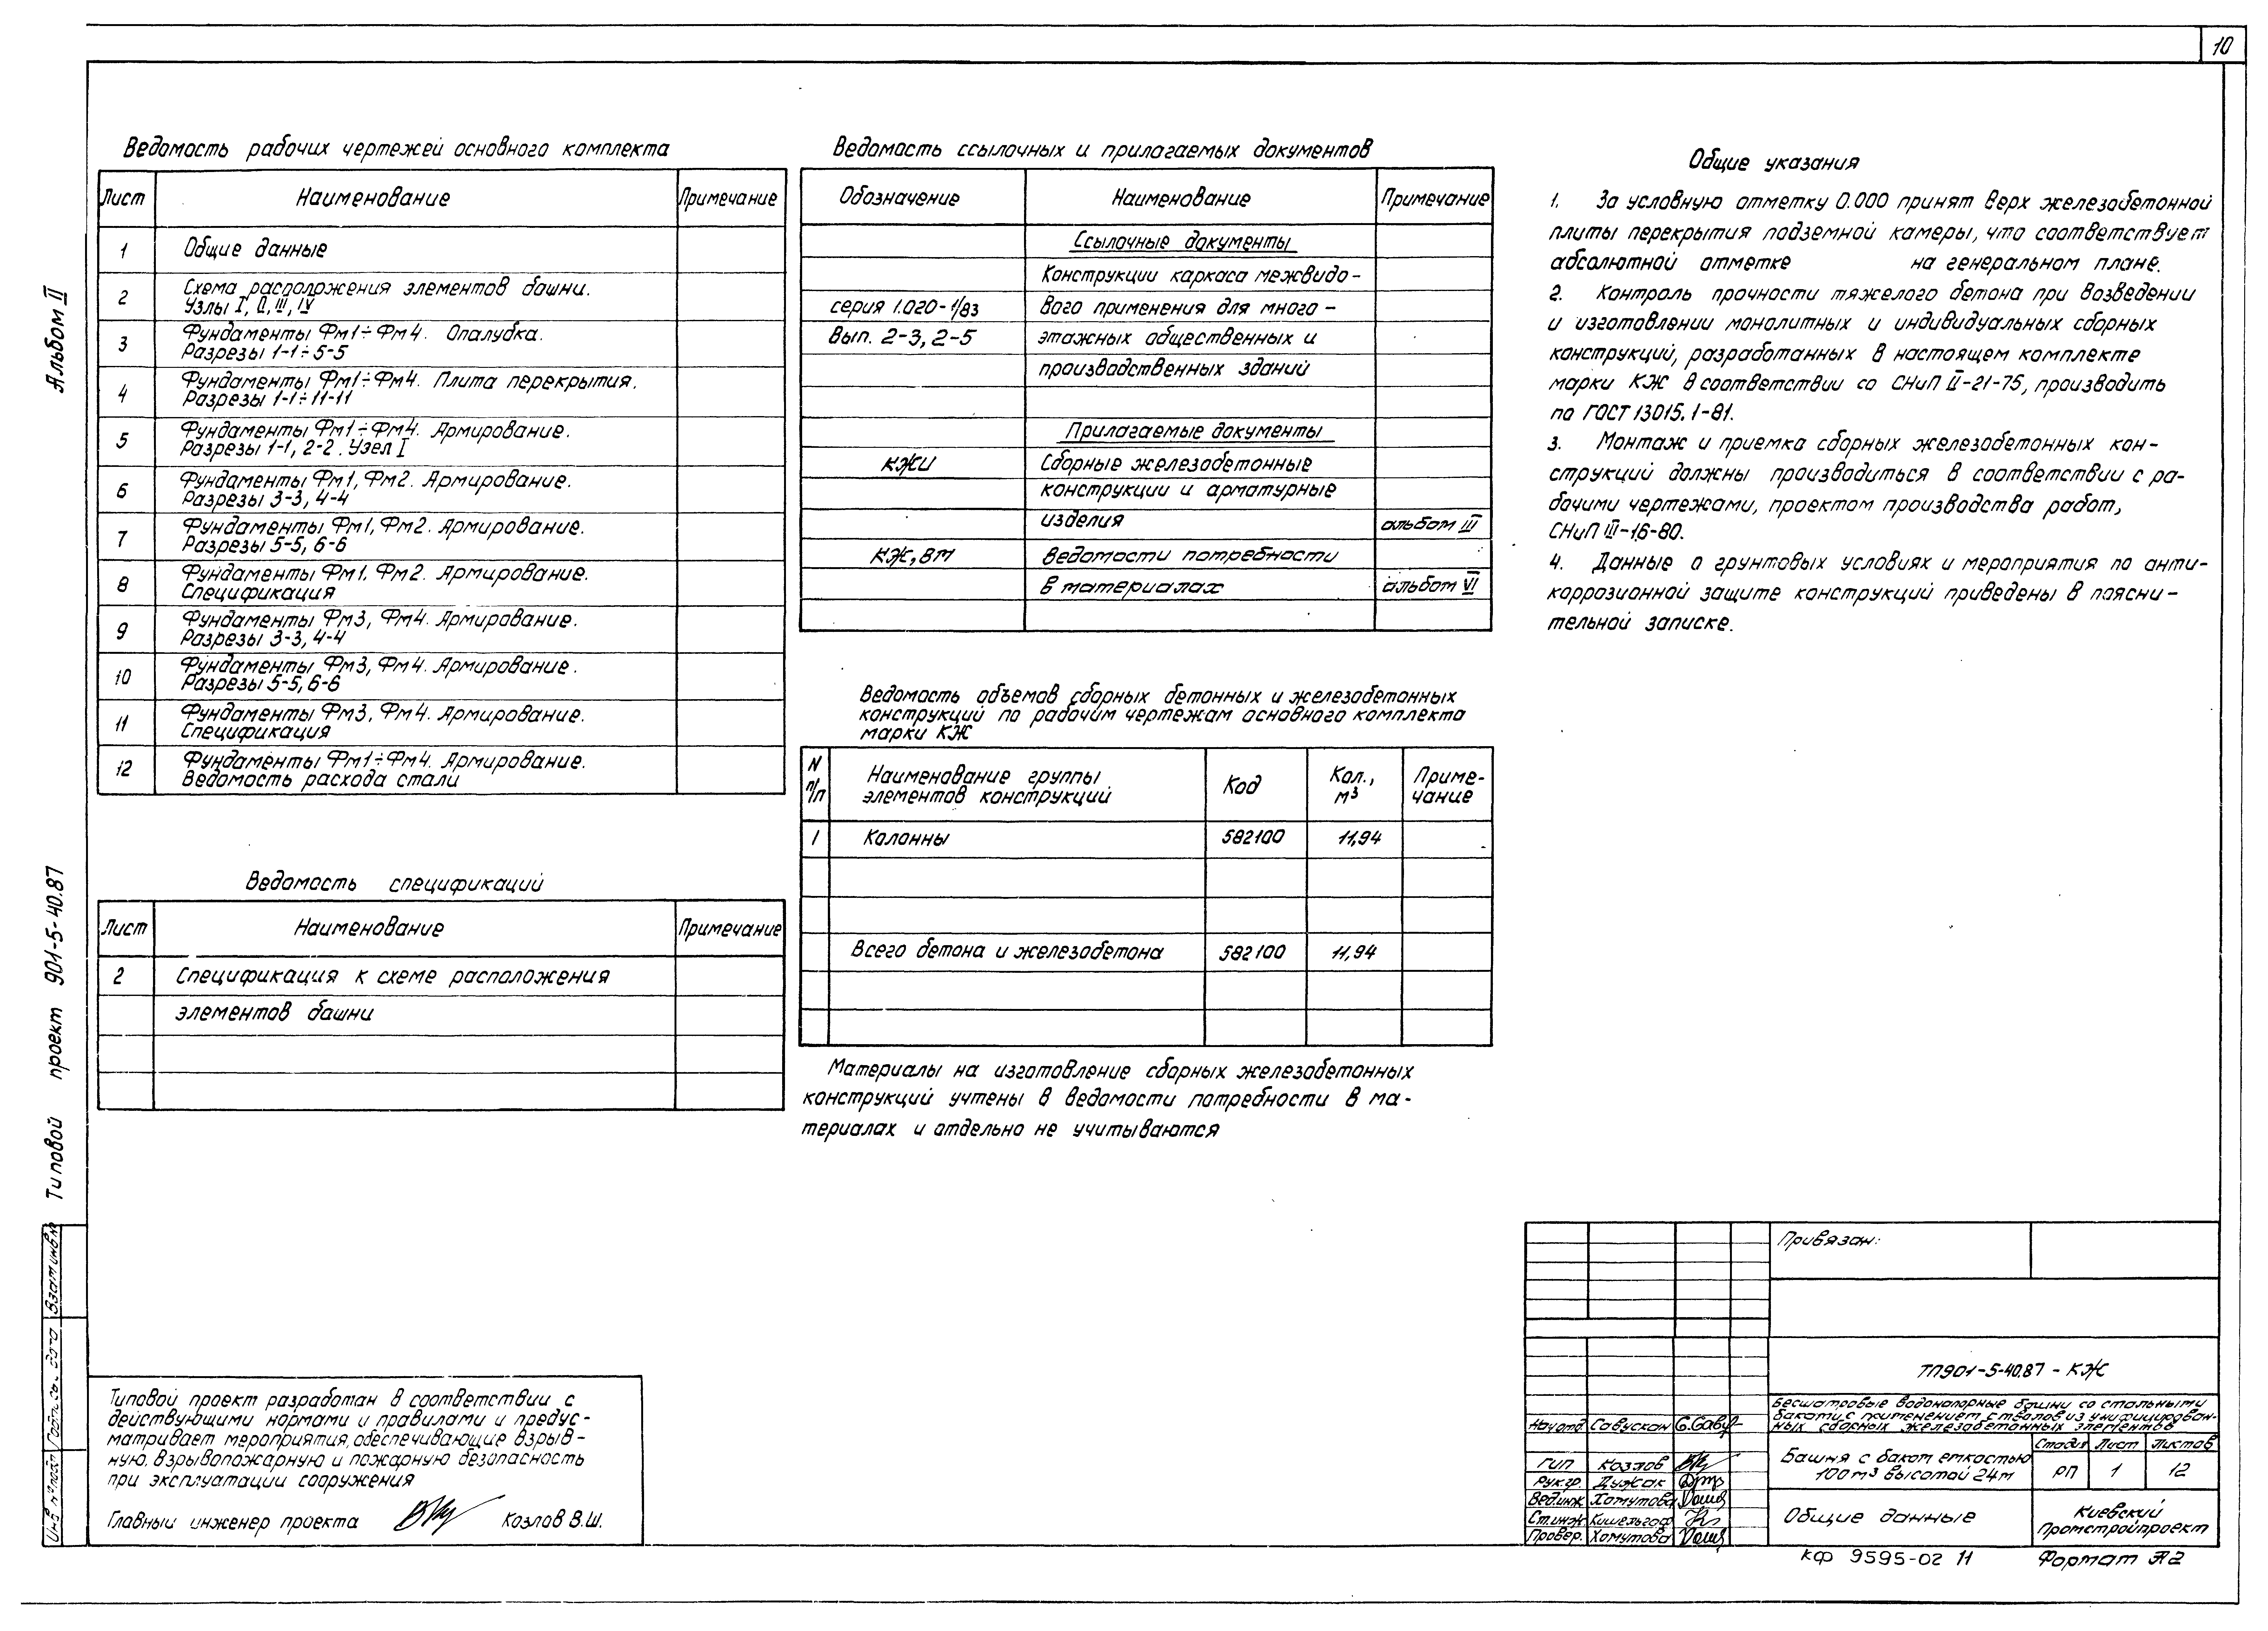 10
Альбом II
Типовой проект 901-5-40.87
Ведомость рабочих чертежей основного комплекта
Лист Наименование Примечание
1 Общие данные
2 Схема расположения элементов башни.
Узлы I, II, III, IV
3 Фундаменты Фм1÷Фм4. Опалубка.
Разрезы 1-1÷5-5
4 Фундаменты Фм1÷Фм4. Плита перекрытия.
Разрезы 1-1÷11-11
5 Фундаменты Фм1÷Фм4. Армирование.
Разрезы 1-1, 2-2. Узел I
6 Фундаменты Фм1, Фм2. Армирование.
Разрезы 3-3, 4-4
7 Фундаменты Фм1, Фм2. Армирование.
Разрезы 5-5, 6-6
8 Фундаменты Фм1, Фм2. Армирование.
Спецификация
9 Фундаменты Фм3, Фм4. Армирование.
Разрезы 3-3, 4-4
10 Фундаменты Фм3, Фм4. Армирование.
Разрезы 5-5, 6-6
11 Фундаменты Фм3, Фм4. Армирование.
Спецификация
12 Фундаменты Фм1÷Фм4. Армирование.
Ведомость расхода стали
Ведомость спецификаций
Лист Наименование Примечание
2 Спецификация к схеме расположения
элементов башни
Ведомость ссылочных и прилагаемых документов
Обозначение Наименование Примечание
Ссылочные документы
Конструкции каркаса межвидо-
серия 1.020-1/83 вого применения для много-
Вып. 2-3, 2-5 этажных общественных и
производственных зданий
Прилагаемые документы
КЖИ Сборные железобетонные
конструкции и арматурные
изделия альбом III
КЖ, ВМ Ведомости потребности
в материалах альбом VI
Ведомость объемов сборных бетонных и железобетонных
конструкций по рабочим чертежам основного комплекта
марки КЖ
N п/п Наименование группы элементов конструкций Код Кол., м³ Приме-чание
1 Колонны 582100 11,94
Всего бетона и железобетона 582100 11,94
Материалы на изготовление сборных железобетонных
конструкций учтены в ведомости потребности в ма-
териалах и отдельно не учитываются
Общие указания
1. За условную отметку 0.000 принят верх железобетонной
плиты перекрытия подземной камеры, что соответствует
абсолютной отметке на генеральном плане.
2. Контроль прочности тяжелого бетона при возведении
и изготовлении монолитных и индивидуальных сборных
конструкций, разработанных в настоящем комплекте
марки КЖ в соответствии со СНиП II-21-75, производить
по ГОСТ 13015.1-81.
3. Монтаж и приемка сборных железобетонных кон-
струкций должны производиться в соответствии с ра-
бочими чертежами, проектом производства работ,
СНиП III-16-80.
4. Данные о грунтовых условиях и мероприятия по анти-
коррозионной защите конструкций приведены в поясни-
тельной записке.
Типовой проект разработан в соответствии с
действующими нормами и правилами и предус-
матривает мероприятия, обеспечивающие взрыв-
ную, взрывопожарную и пожарную безопасность
при эксплуатации сооружения
Главный инженер проекта Козлов В.Ш.
Инв. № подл Подпись и дата Взам инв. №
Привязан:
ТП901-5-40.87 - КЖ
Бесшатровые водонапорные башни со стальными
баками с применением стволов из унифицирован-
ных сборных железобетонных элементов
Нач отд Савускан
Гип Козлов
Рук. гр. Дужак
Вед. инж. Хомутова
Ст. инж. Кишельгоф
Провер. Хомутова
Башня с баком емкостью
100 м³ высотой 24 м
Стадия Лист Листов
РП 1 12
Общие данные
Киевский
Промстройпроект
КФ 9595-02 11 Формат А2